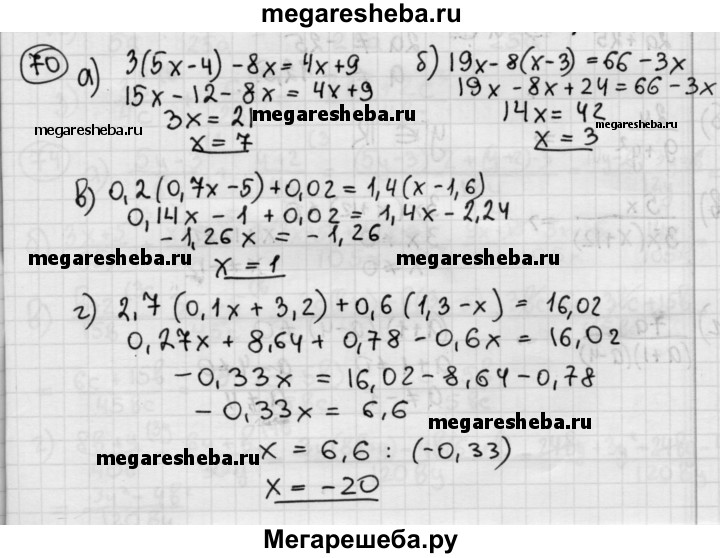 megaresheba.ru
70
а) 3(5x-4) - 8x = 4x+9
15x - 12 - 8x = 4x+9
3x = 21
x = 7
megaresheba.ru
megaresheba.ru
б) 19x - 8(x-3) = 66 - 3x
19x - 8x + 24 = 66 - 3x
14x = 42
x = 3
megaresheba.ru
в) 0,2(0,7x - 5) + 0,02 = 1,4(x - 1,6)
0,14x - 1 + 0,02 = 1,4x - 2,24
- 1,26x = - 1,26
x = 1
megaresheba.ru
megaresheba.ru
г) 2,7 (0,1x + 3,2) + 0,6 (1,3 - x) = 16,02
0,27x + 8,64 + 0,78 - 0,6x = 16,02
- 0,33x = 16,02 - 8,64 - 0,78
- 0,33x = 6,6
megaresheba.ru
x = 6,6 : (-0,33)
megaresheba.ru
x = -20
Мегарешеба.ру